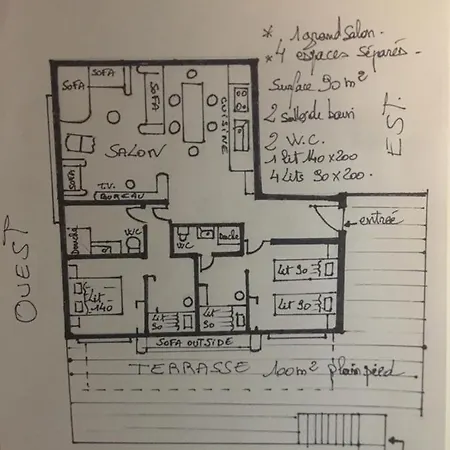 * 1 grand Salon.
* 4 espaces séparés.
Surface 90 m²
2 salles de bain
2 W.C.
1 lit 140 x 200
4 Lits 90 x 200.
EST.
OUEST
SOFA
SOFA
SOFA
SOFA
CUISINE
SALON
T.V.
BUREAU
entrée
Douche
WC
WC
Douche
Lit
140
Lit
90
Lit
90
Lit 90
Lit 90
SOFA OUTSIDE
TERRASSE 100 m² plain pied